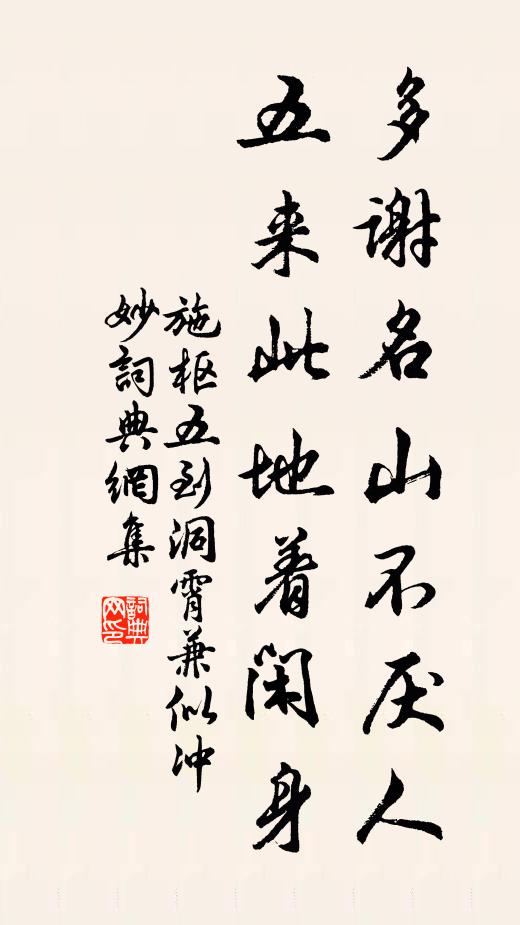 多谢名山不厌人
五来此地着闲身
施枢五到洞霄兼似冲
妙詞典網集
詞典网印